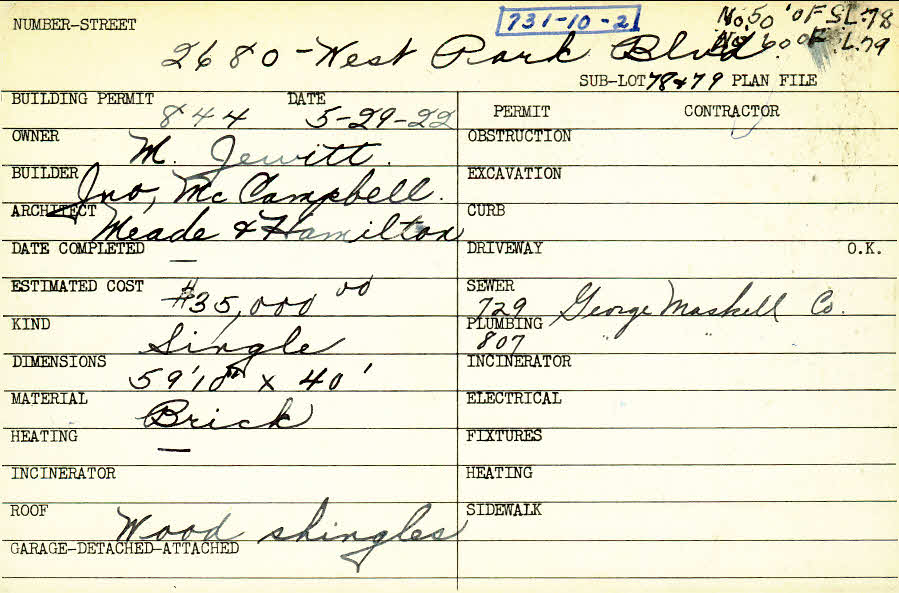 NUMBER-STREET 731-10-2 No.50'OF SL.78
2680-West Park Blvd. No.60'OF S.L.79
SUB-LOT 78&79 PLAN FILE
BUILDING PERMIT 844 DATE 5-29-22
PERMIT CONTRACTOR
OWNER M. Jewitt.
OBSTRUCTION
BUILDER Jno, McCampbell.
EXCAVATION
ARCHITECT Meade & Hamilton
CURB
DATE COMPLETED —
DRIVEWAY O.K.
ESTIMATED COST #35,000 00
SEWER 729 George Maskell Co.
KIND Single
PLUMBING 807 " " "
DIMENSIONS 59'10" x 40'
INCINERATOR
MATERIAL Brick
ELECTRICAL
HEATING —
FIXTURES
INCINERATOR
HEATING
ROOF Wood shingles
SIDEWALK
GARAGE-DETACHED-ATTACHED